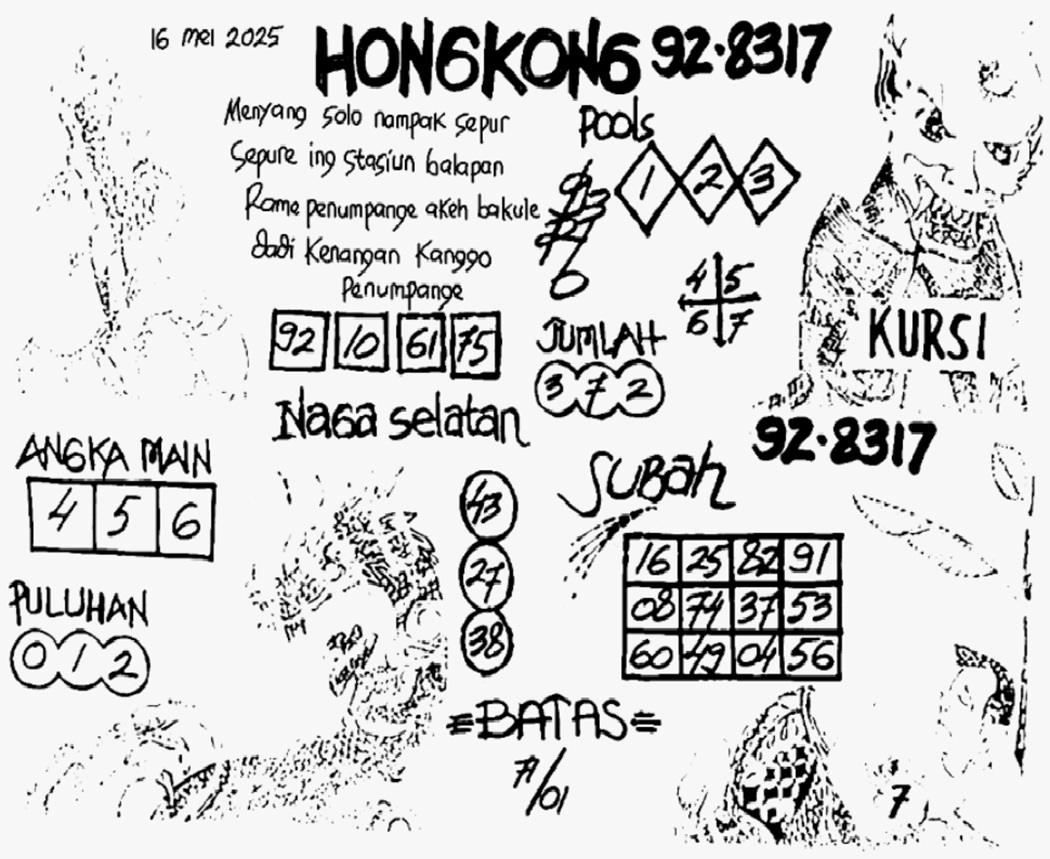 16 mei 2025
HONGKONG 92·8317
Menyang solo nampak sepur
Sepure ing stasiun balapan
Rame penumpange akeh bakule
dadi Kenangan Kanggo
Penumpange
92 10 61 75
Pools
1 2 3
4 5
6 7
JUMLAH
3 7 2
KURSI
92·8317
Naga selatan
43
27
38
ANGKA MAIN
4 5 6
PULUHAN
0 1 2
SUBAH
16 25 82 91
08 74 37 53
60 49 04 56
=BATAS=
71/01
7